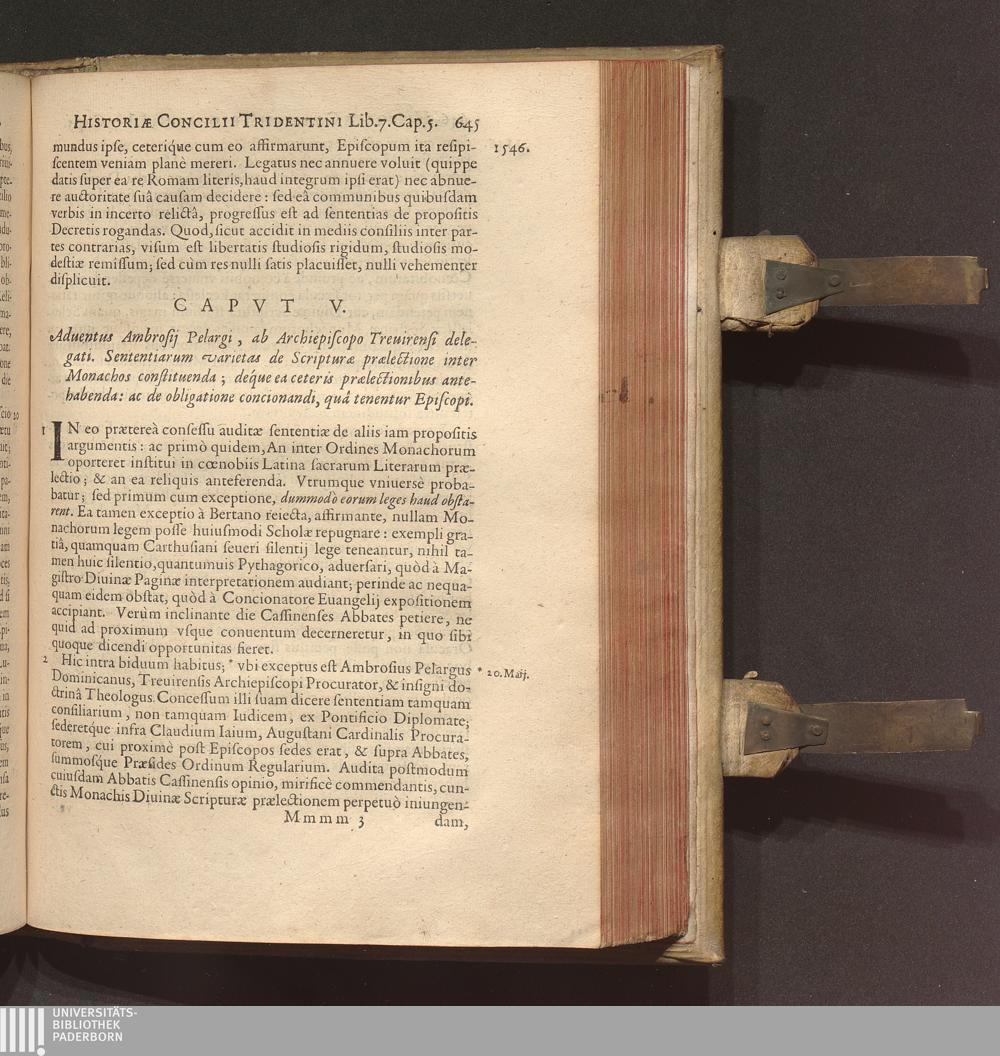 HISTORIÆ CONCILII TRIDENTINI Lib.7.Cap.5. 645
1546.
mundus ipſe, ceterique cum eo affirmarunt, Epiſcopum ita reſipi-
ſcentem veniam planè mereri. Legatus nec annuere voluit (quippe
datis ſuper ea re Romam literis, haud integrum ipſi erat) nec abnue-
re auctoritate ſuâ cauſam decidere: ſed eâ communibus quibuſdam
verbis in incerto relictâ, progreſſus eſt ad ſententias de propoſitis
Decretis rogandas. Quod, ſicut accidit in mediis conſiliis inter par-
tes contrarias, viſum eſt libertatis ſtudioſis rigidum, ſtudioſis mo-
deſtiæ remiſſum; ſed cùm res nulli ſatis placuiſſet, nulli vehementer
diſplicuit.
CAPVT V.
Aduentus Ambroſij Pelargi, ab Archiepiſcopo Treuirenſi dele-
gati. Sententiarum varietas de Scripturæ prælectione inter
Monachos conſtituenda; déque ea ceteris prælectionibus ante-
habenda: ac de obligatione concionandi, quâ tenentur Epiſcopi.
1 IN eo prætereà conſeſſu auditæ ſententiæ de aliis iam propoſitis
argumentis: ac primò quidem, An inter Ordines Monachorum
oporteret inſtitui in cœnobiis Latina ſacrarum Literarum præ-
lectio; & an ea reliquis anteferenda. Vtrumque vniuersè proba-
batur; ſed primum cum exceptione, dummodò eorum leges haud obſta-
rent. Ea tamen exceptio à Bertano reiecta, affirmante, nullam Mo-
nachorum legem poſſe huiuſmodi Scholæ repugnare: exempli gra-
tiâ, quamquam Carthuſiani ſeueri ſilentij lege teneantur, nihil ta-
men huic ſilentio, quantumuis Pythagorico, aduerſari, quòd à Ma-
giſtro Diuinæ Paginæ interpretationem audiant; perinde ac nequa-
quam eidem obſtat, quòd à Concionatore Euangelij expoſitionem
accipiant. Verùm inclinante die Caſſinenſes Abbates petiere, ne
quid ad proximum vſque conuentum decerneretur, in quo ſibi
quoque dicendi opportunitas fieret.
2 Hic intra biduum habitus; * vbi exceptus eſt Ambroſius Pelargus
* 20. Maij.
Dominicanus, Treuirenſis Archiepiſcopi Procurator, & inſigni do-
ctrinâ Theologus. Conceſſum illi ſuam dicere ſententiam tamquam
conſiliarium, non tamquam Iudicem, ex Pontificio Diplomate;
ſederetque infra Claudium Iaium, Auguſtani Cardinalis Procura-
torem, cui proximè poſt Epiſcopos ſedes erat, & ſupra Abbates,
ſummoſque Præſides Ordinum Regularium. Audita poſtmodum
cuiuſdam Abbatis Caſſinenſis opinio, mirificè commendantis, cun-
ctis Monachis Diuinæ Scripturæ prælectionem perpetuò iniungen-
Mmmm 3 dam,
UNIVERSITÄTS-
BIBLIOTHEK
PADERBORN